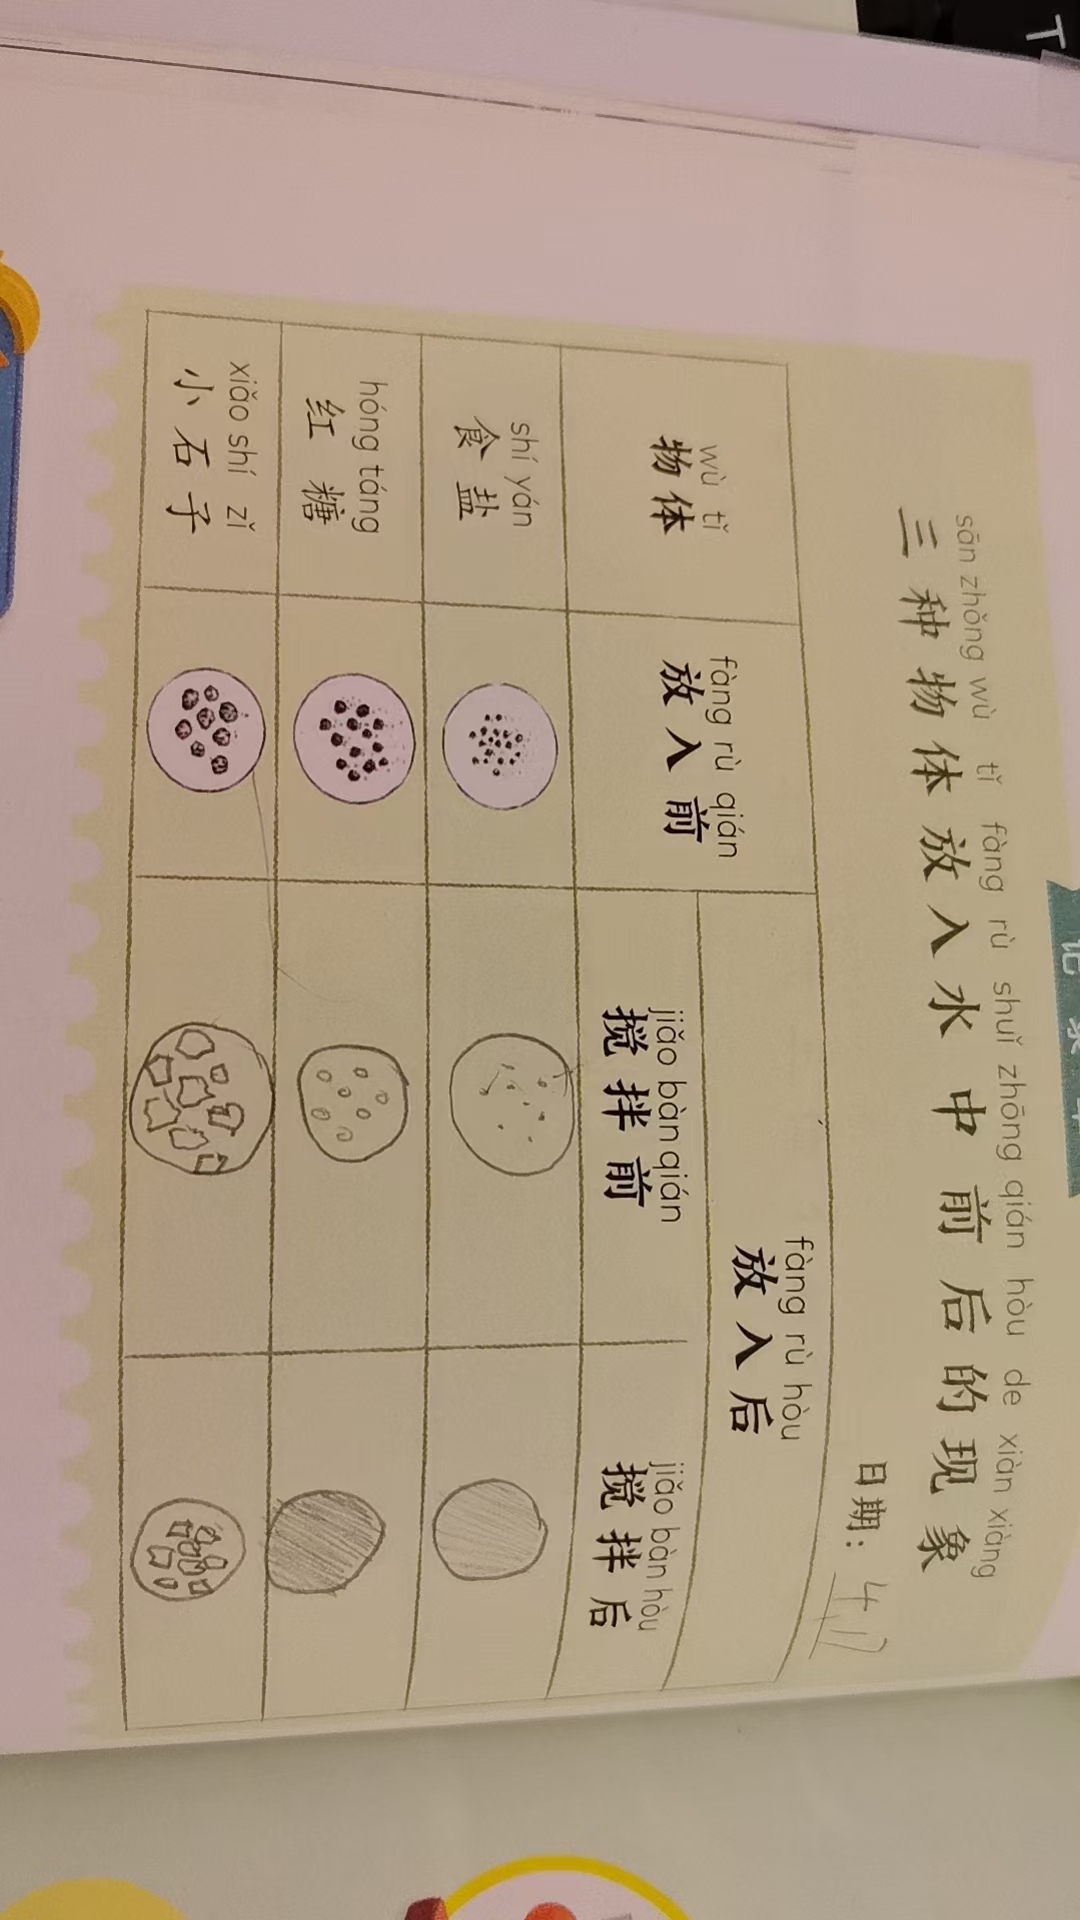 T
sān zhǒng wù tǐ fàng rù shuǐ zhōng qián hòu de xiàn xiàng
三种物体放入水中前后的现象
日期：4.17
wù tǐ
物体
fàng rù qián
放入前
fàng rù hòu
放入后
jiǎo bàn qián
搅拌前
jiǎo bàn hòu
搅拌后
shí yán
食盐
hóng táng
红糖
xiǎo shí zǐ
小石子